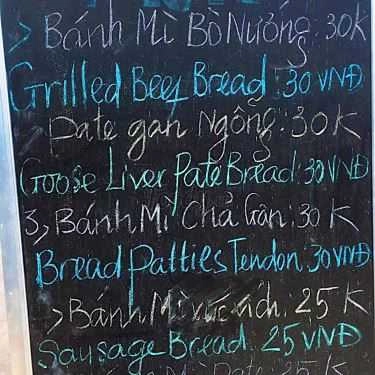 > Bánh Mì Bò Nướng : 30K
Grilled Beef Bread : 30 VNĐ
Pate gan Ngỗng : 30K
Goose Liver Pate Bread : 30 VNĐ
3, Bánh Mì Chả Gân : 30 K
Bread Patties Tendon : 30 VNĐ
> Bánh Mì xúc xích : 25 K
Sausage Bread : 25 VNĐ
Pate : 25 K